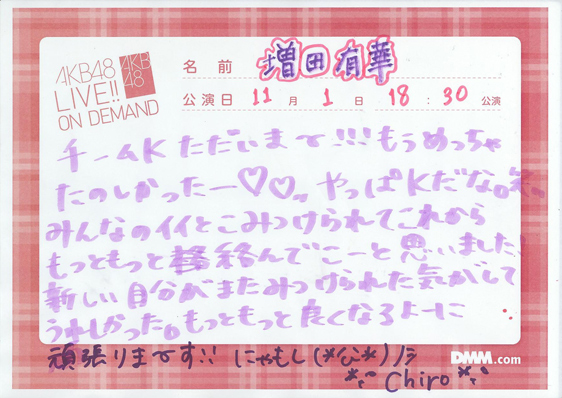 AKB48
LIVE!!
ON DEMAND
AKB
48
名前 増田有華
公演日 11 月 1 日 18 : 30 公演
チームKただいまで!!!もうめっちゃ
たのしかったー♡♡。やっぱKだな。笑。
みんなのイイとこみつけられてこれから
もっともっと絡んでこーと思いました!
新しい自分がまたみつけられた気がして
うれしかった。もっともっと良くなるよーに
頑張りまです!! にゃもし(*'ω'*)ノシ
DMM.com
Chiro